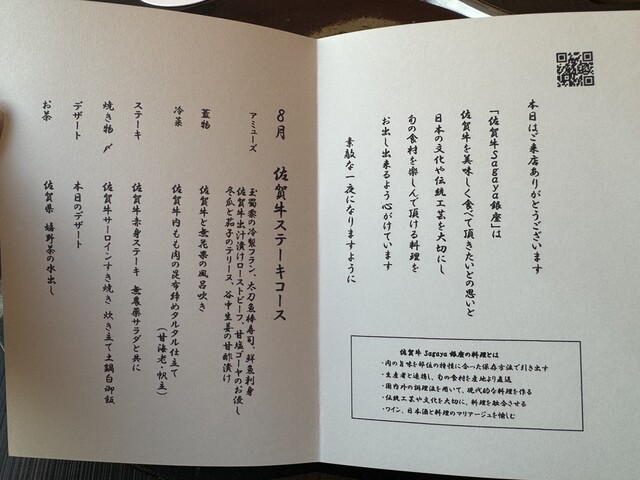 本日はご来店ありがとうございます
「佐賀牛Sagaya銀座」は
佐賀牛を美味しく食べて頂きたいとの思いと
日本の文化や伝統工芸を大切にし
旬の食材を楽しんで頂ける料理を
お出し出来るよう心がけています
素敵な一夜になりますように
佐賀牛 Sagaya 銀座の料理とは
・肉の旨味を部位の特性に合った保存方法で引き出す
・生産者と連携し、旬の食材を産地より直送
・国内外の調理法を用いて、現代的な料理を作る
・伝統工芸や文化を大切に、料理を融合させる
・ワイン、日本酒と料理のマリアージュを愉しむ
8月 佐賀牛ステーキコース
アミューズ 玉蜀黍の冷製フラン、太刀魚棒寿司、鮮魚刺身
佐賀牛出汁漬けローストビーフ、甘塩ゴーヤのお浸し
冬瓜と茄子のテリーヌ、谷中生姜の甘酢漬け
蓋物 佐賀牛と無花果の風呂吹き
冷菜 佐賀牛内もも肉の昆布締めタルタル仕立て
(甘海老・帆立)
ステーキ 佐賀牛赤身ステーキ 無農薬サラダと共に
焼き物 〆 佐賀牛サーロインすき焼き 炊き立て土鍋白御飯
デザート 本日のデザート
お茶 佐賀県 嬉野茶の水出し